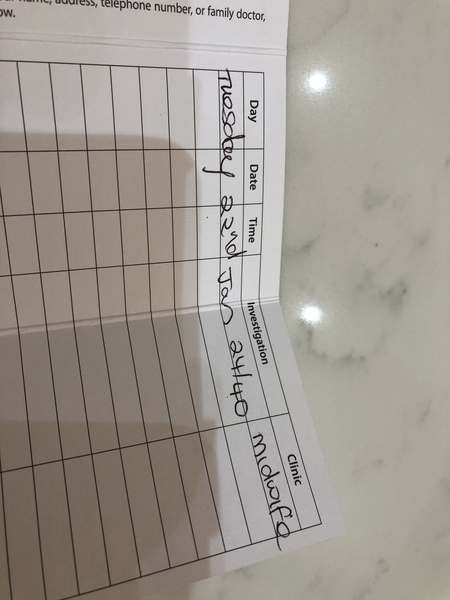 name, address, telephone number, or family doctor,
ow.
Day Date Time Investigation Clinic
Tuesday 22nd Jan 24/40 Midwife